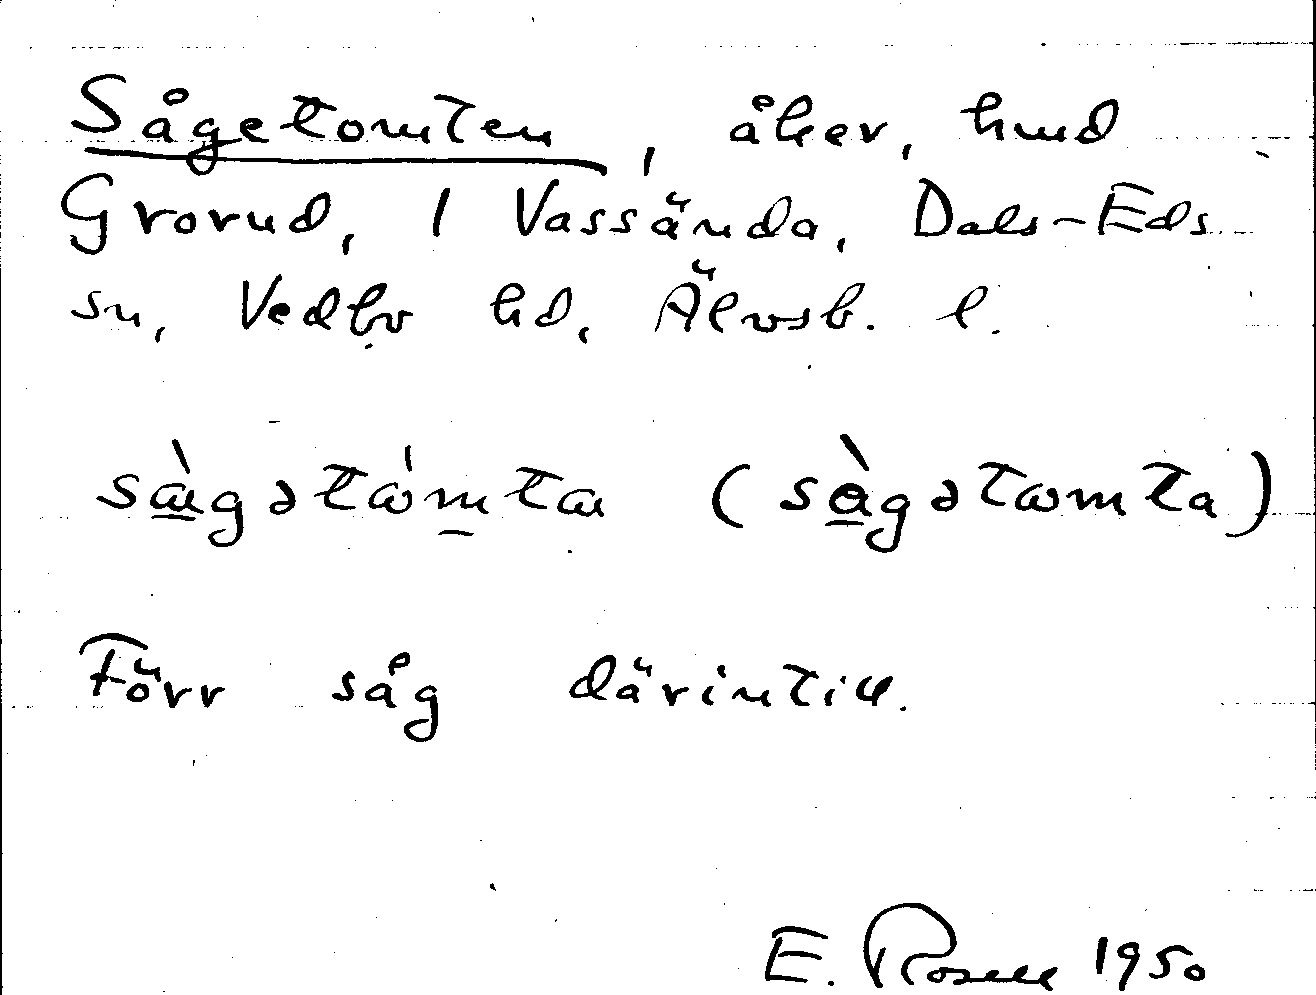 Sågetomten, åker, hmd
Grorud, 1 Vassända, Dals-Eds
sn, Vedbo hd, Älvsb. l.
sàgətómta (sàgətomta)
Förr såg därintill.
E. Rosell 1950